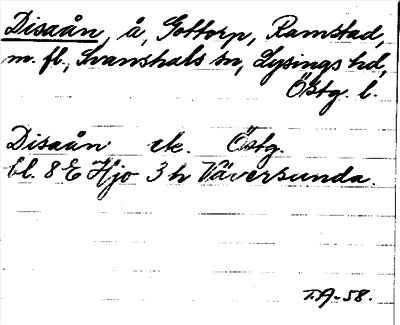 Disaån, å, Gottorp, Ramstad,
m. fl., Svanshals sn, Lysings hd,
Östg. l.
Disaån ek. Östg.
bl. 8 E Hjo 3 h Väversunda.
T.A-58.